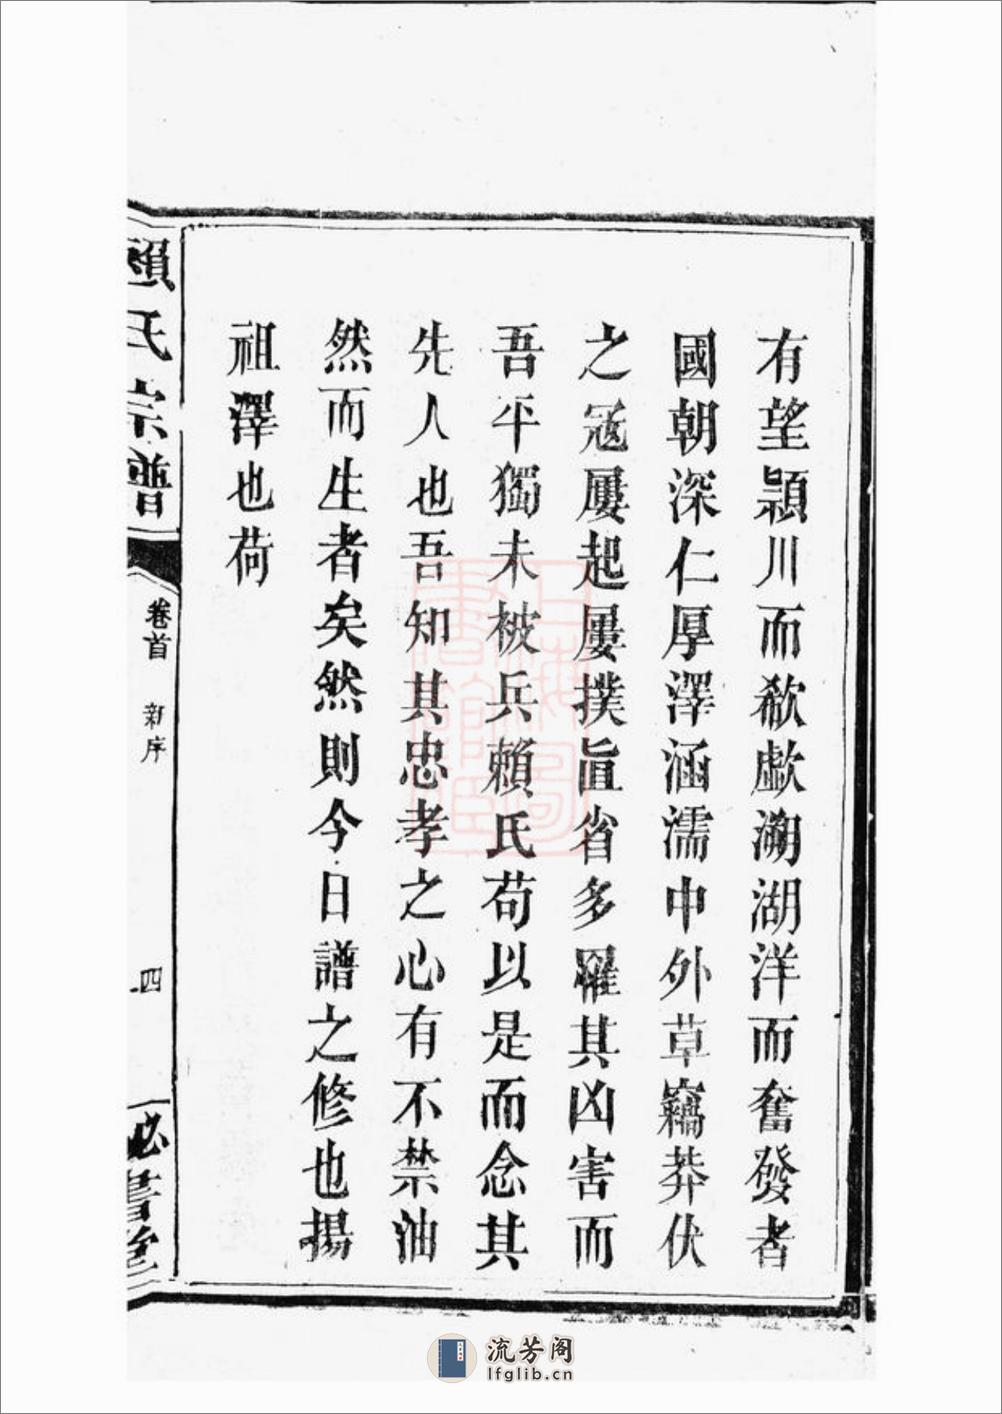 有望頴川而欷歔溯湖洋而奮發者
國朝深仁厚澤涵濡中外草竊莽伏
之冦屢起屢撲旨省多罹其凶害而
吾平獨未被兵賴氏苟以是而念其
先人也吾知其忠孝之心有不禁油
然而生者矣然則今日譜之修也揚
祖澤也荷
賴氏宗譜
卷首 新序
四
必書堂
上海圖書館藏
流芳阁
lfglib.cn